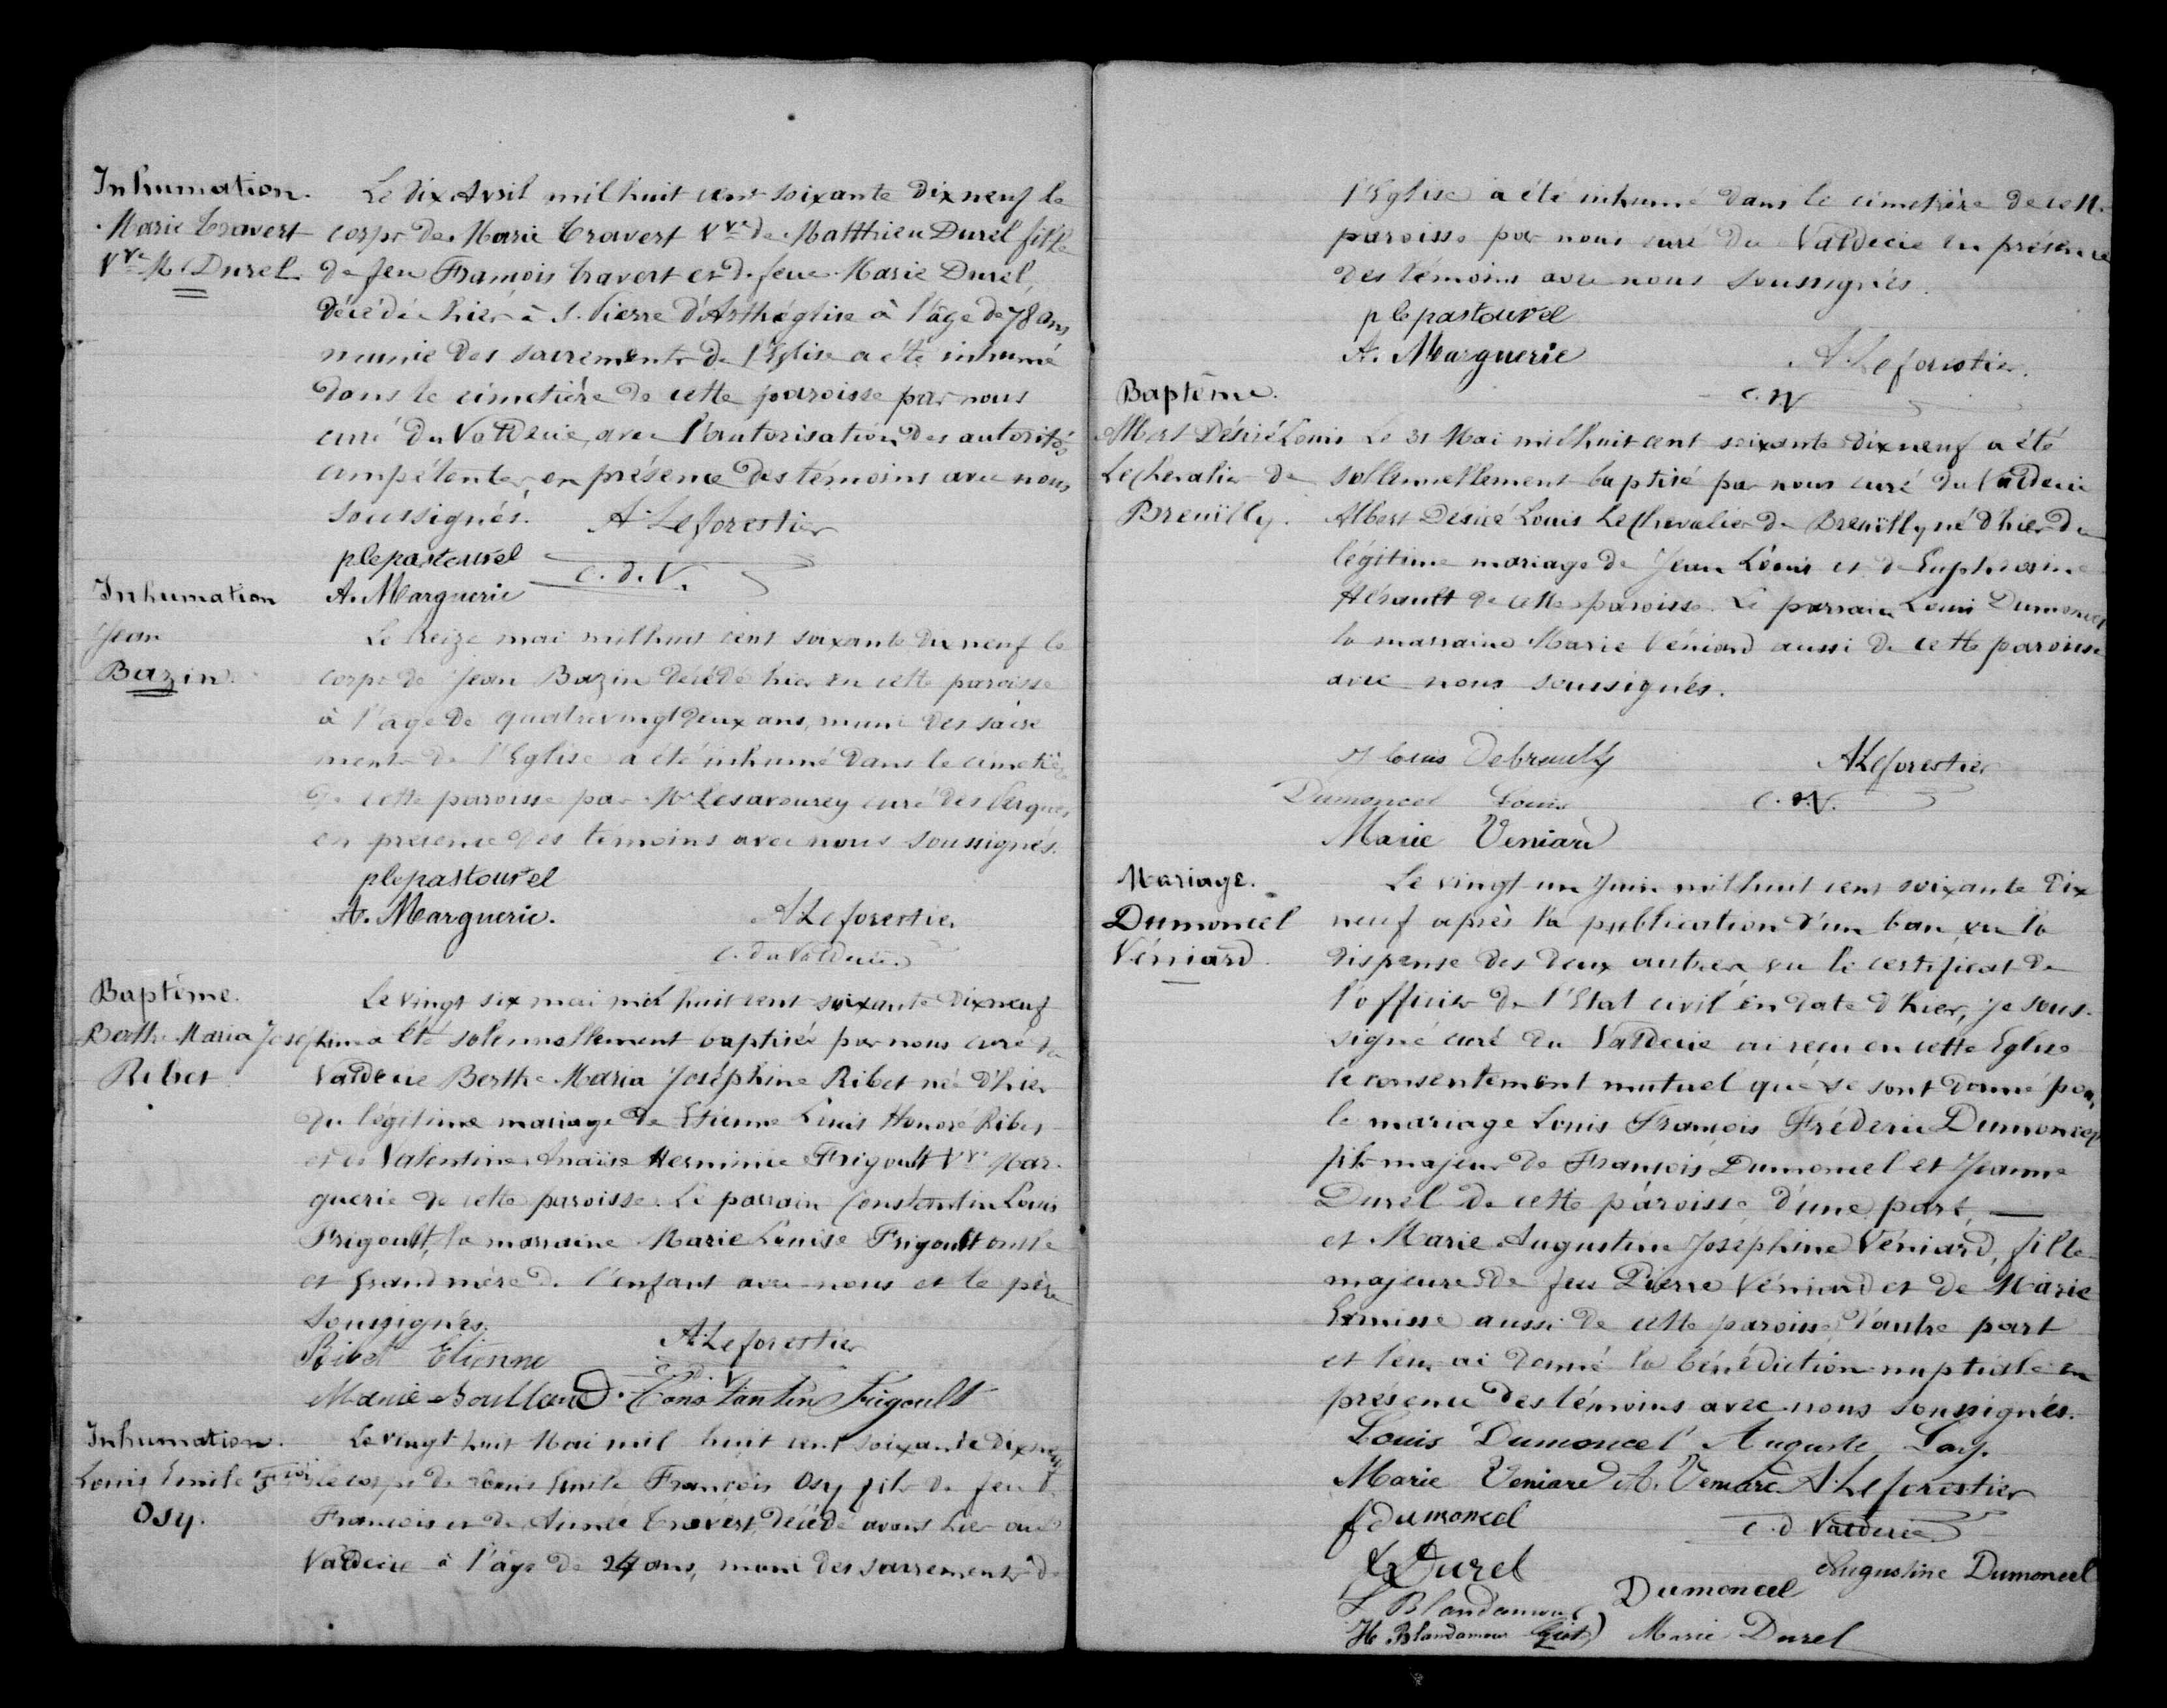 Inhumation.
Marie Travert
Vve M. Durel.
Le dix Avril mil huit cent soixante dix neuf le
corps de Marie Travert Vve de Matthieu Durel fille
de feu François Travert et de feue Marie Durel,
décédée hier à S. Pierre d'Arthéglise à l'âge de 78 ans
munie des sacrements de l'Eglise a été inhumé
dans le cimetière de cette paroisse par nous
curé du Valdecie, avec l'autorisation des autorités
compétentes, en présence des témoins avec nous
soussignés. A. Leforestier
plepastourel c. d. V.
A. Marguerie
Inhumation
Jean
Bazin.
Le treize mai mil huit cent soixante dix neuf le
corps de Jean Bazin décédé hier en cette paroisse
à l'âge de quatrevingt deux ans, muni des sacre
ments de l'Eglise a été inhumé dans le cimetière
de cette paroisse par Mr Lesavourey curé des
en présence des témoins avec nous soussignés.
plepastourel
A. Marguerie. A Leforestier
c. du Valdecie.
Baptême.
Berthe Maria Joséphine
Ribet
Le vingt six mai mil huit cent soixante dix neuf
a été solennellement baptisée par nous curé du
Valdecie Berthe Maria Joséphine Ribet née d'hier
du légitime mariage de Etienne Louis Honoré Ribet
et de Valentine Anaïse Herminie Frigoult Vve Mar-
guerie de cette paroisse. Le parrain Constantin Louis
Frigoult, la marraine Marie Louise Frigoult oncle
et grand mère de l'enfant avec nous et le père
soussignés.
Ribet Etienne A. Leforestier
c. d. V
Marie Boullaud. Constantin Frigoult
Inhumation.
Louis Emile Fçois
Osy.
Le vingt huit Mai mil huit cent soixante dix neuf
le corps de Louis Emile François Osy fils de feu
François et de Aimée Travert, décédé avant hier au
Valdecie à l'âge de 24 ans, muni des sacrements de
l'Eglise a été inhumé dans le cimetière de cette
paroisse par nous curé du Valdecie en présence
des témoins avec nous soussignés.
plepastourel
A. Marguerie A. Leforestier.
c. d. V
Baptême.
Albert Désiré Louis
Lechevalier de
Breuilly.
Le 31 Mai mil huit cent soixante dix neuf a été
sollennellement baptisé par nous curé du Valdecie
Albert Désiré Louis LeChevalier de Breuilly né d'hier du
légitime mariage de Jean Louis et d'Euphrosine
Hérault de cette paroisse. Le parrain Louis Dumoncel
la marraine Marie Véniard aussi de cette paroisse
avec nous soussignés.
J Louis Debreuilly A Leforestier
Dumoncel Louis c. d. V.
Marie Veniard
Mariage.
Dumoncel
Véniard.
Le vingt un Juin mil huit cent soixante dix
neuf après la publication d'un ban, vu la
dispense des deux autres, vu le certificat de
l'officier de l'Etat civil en date d'hier, je sous-
signé curé du Valdecie ai reçu en cette Eglise
le consentement mutuel que se sont donné pour
le mariage Louis François Fréderic Dumoncel
fils majeur de François Dumoncel et Jeanne
Durel de cette paroisse, d'une part,
et Marie Augustine Joséphine Véniard, fille
majeure de feu Pierre Véniard et de Marie
aussi de cette paroisse, d'autre part
et leur ai donné la bénédiction nuptiale en
présence des témoins avec nous soussignés.
Louis Dumoncel Auguste
Marie Veniard A. Veniard A. Leforestier
f dumoncel c. d Valdecie
Durel Augustine Dumoncel
Blandamour Dumoncel
H Blandamour Marie Durel